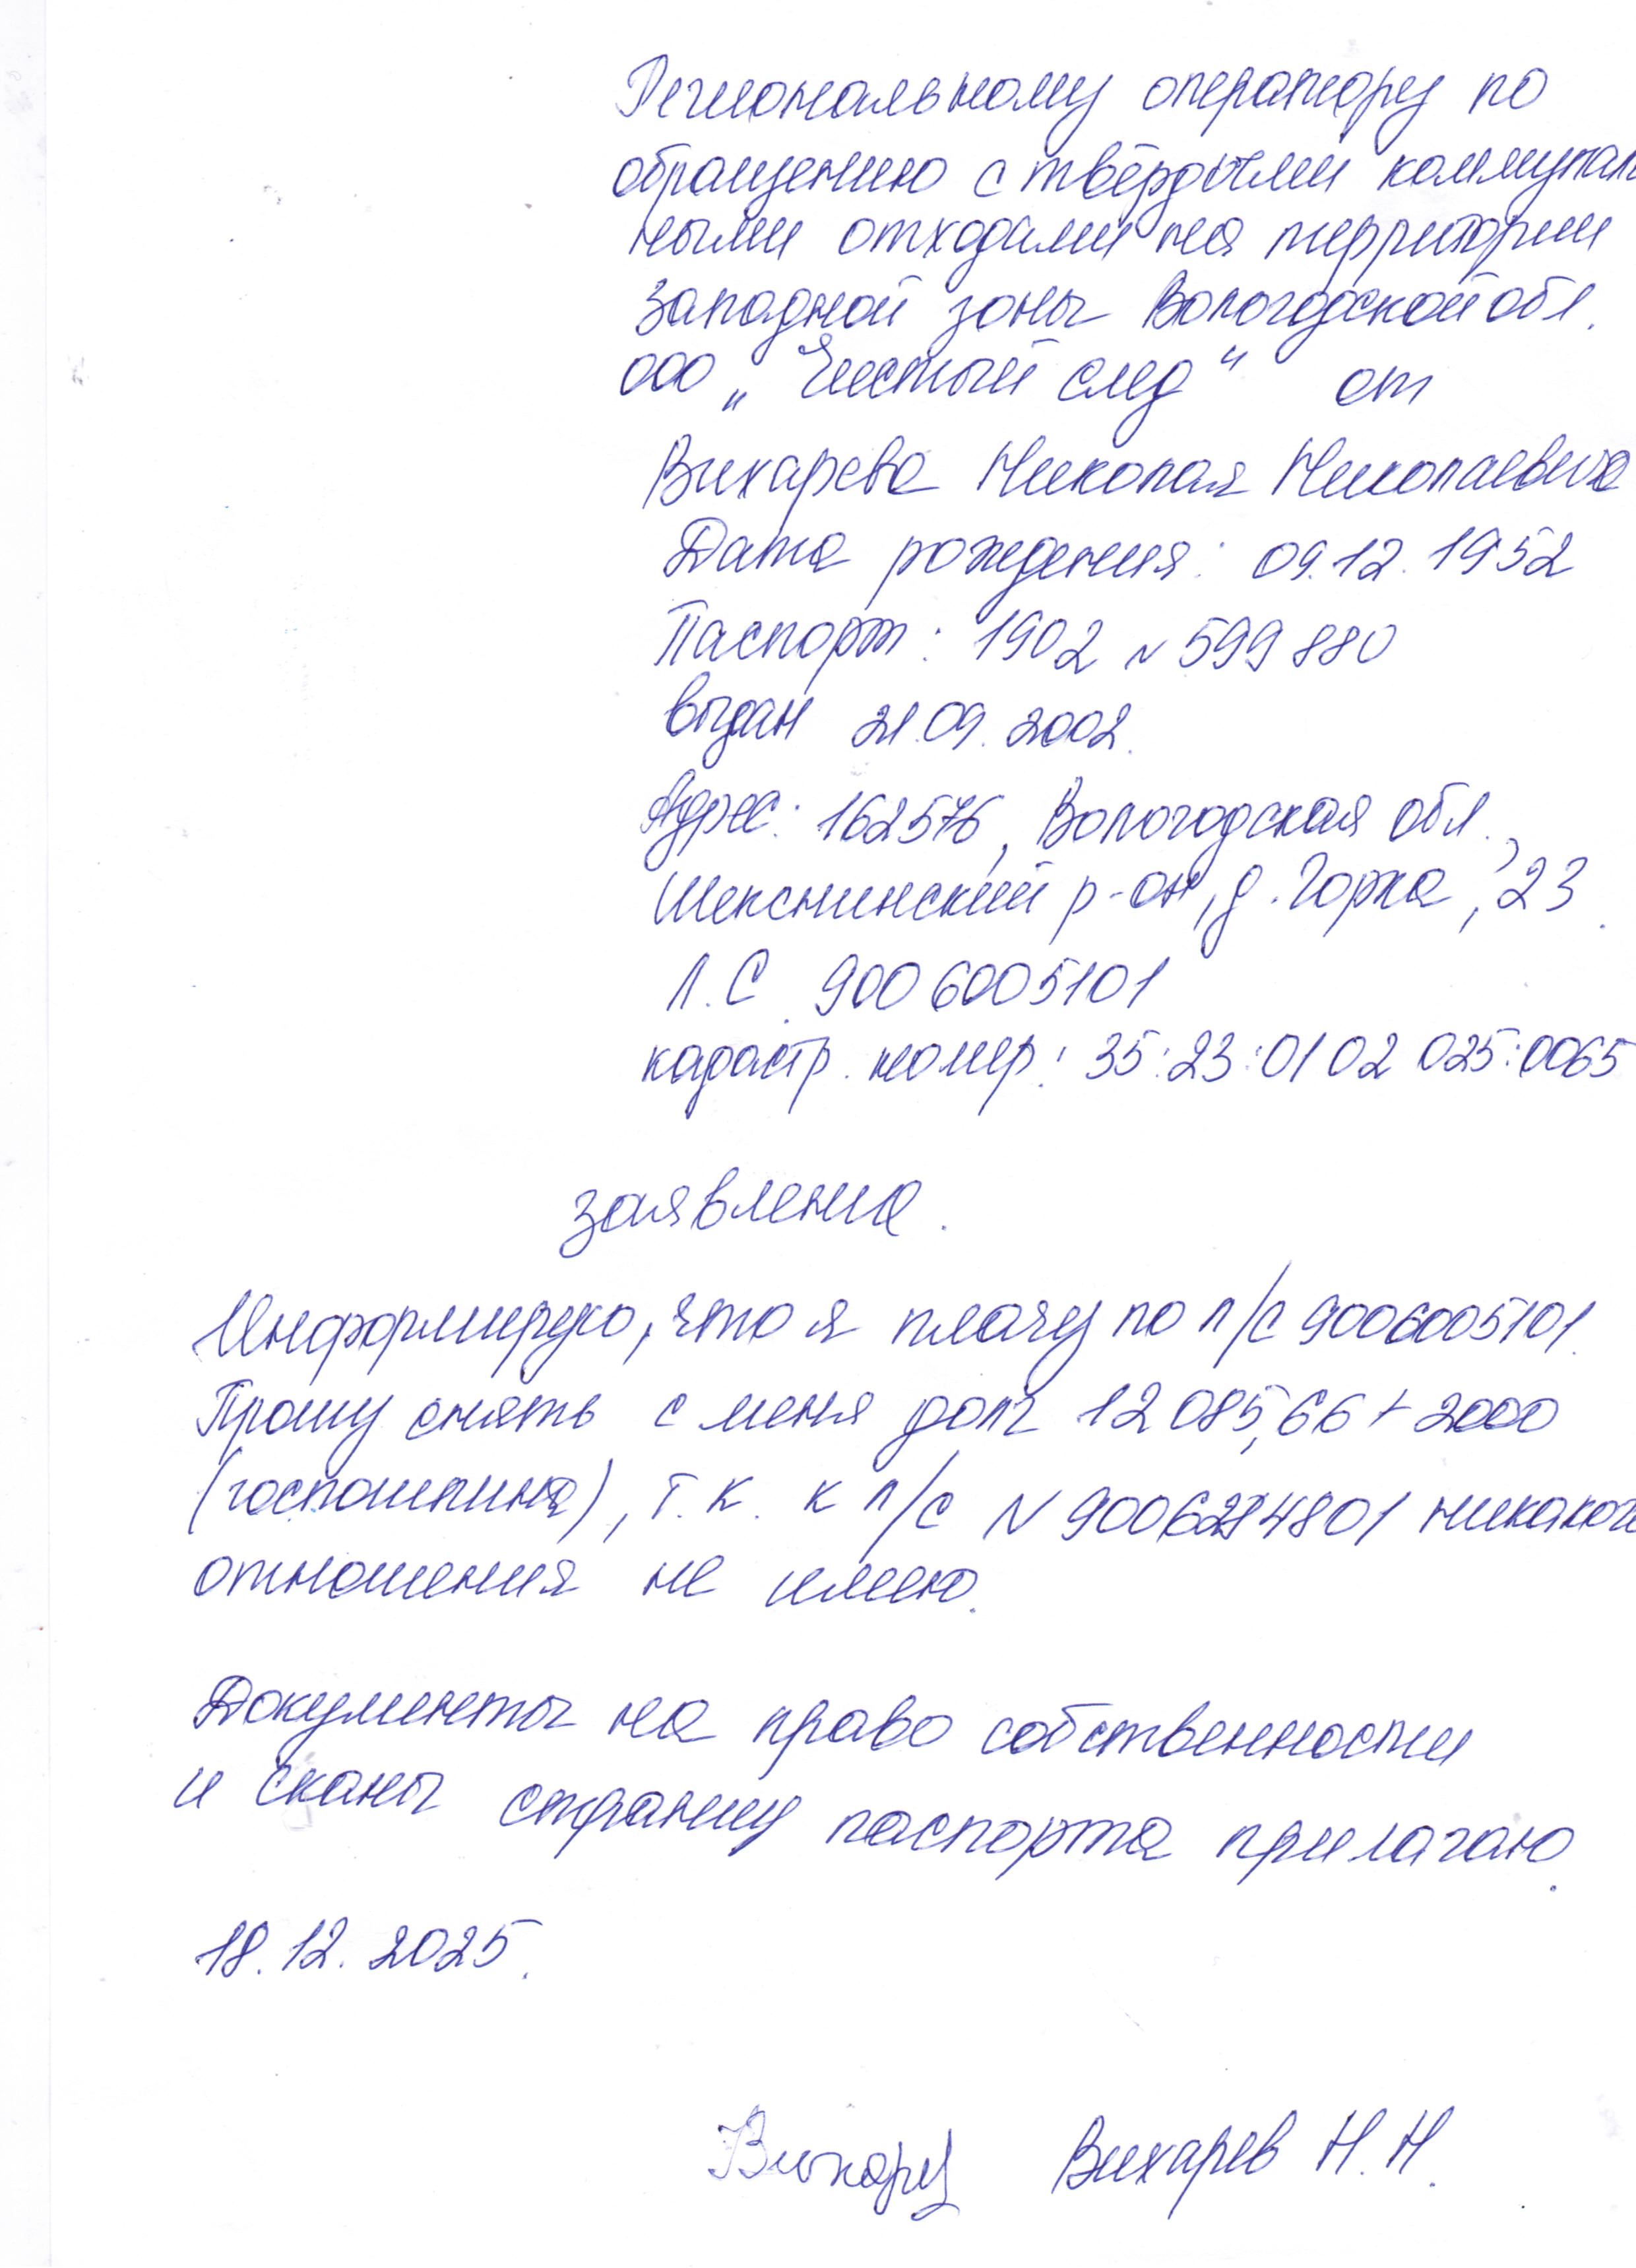 Региональному оператору по
обращению с твёрдыми коммуналь
ными отходами на территории
Западной зоны Вологодской обл.
ООО „Чистый след" от
Вихарева Николая Николаевича
Дата рождения: 09.12.1952
Паспорт: 1902 N 599880
выдан 21.09.2002.
Адрес: 162576, Вологодская обл.,
Шекснинский р-он, д. Горка, 23.
Л.С. 9006005101
кадастр. номер: 35:23:0102025:0065
заявление.
Информирую, что я плачу по л/с 9006005101.
Прошу снять с меня долг 12085,66 + 2000
(госпошлина), т.к. к л/с N никаког
отношения не имею.
Документы на право собственности
и сканы страниц паспорта прилагаю.
18.12.2025.
Вихарев Н.Н.